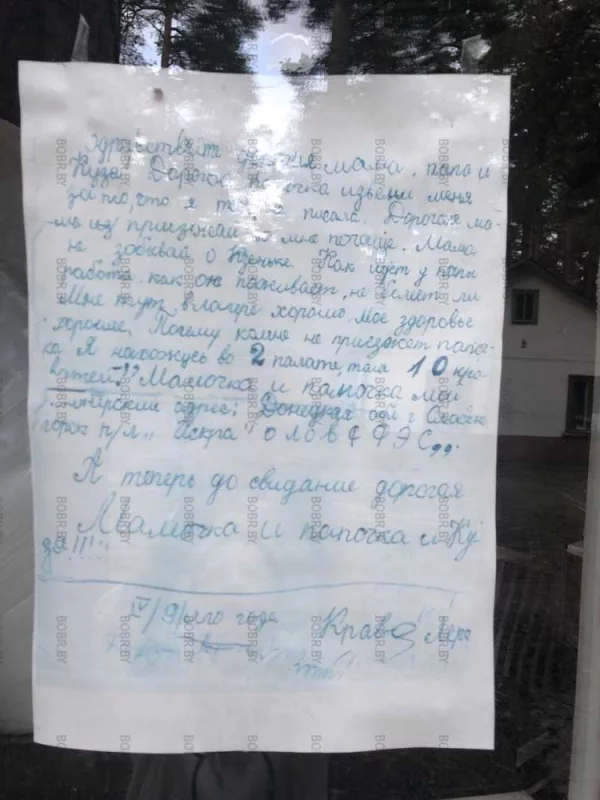 здравствуйте мама, папа и
Кузя. Дорогая извени меня
за то, что я писала. Дорогая ма-
мне почаще. Мама
не забывай о Кузьке. Как идёт у папы
работа как он поживает, не болеет ли
Мне тут в лагере хорошо, мое здоровье
хорошие. Почему комне не приезжает папоч-
ка Я нахожусь во 2 палате, там 10 кро-
ватей!! Мамочка и папочка мой
адрес: Донецкая обл г
горск п/л „Искра"
А теперь до свидание дорогая
Мамочка и папочка и Ку
зя!!!!!
года Лера
BOBR.BY